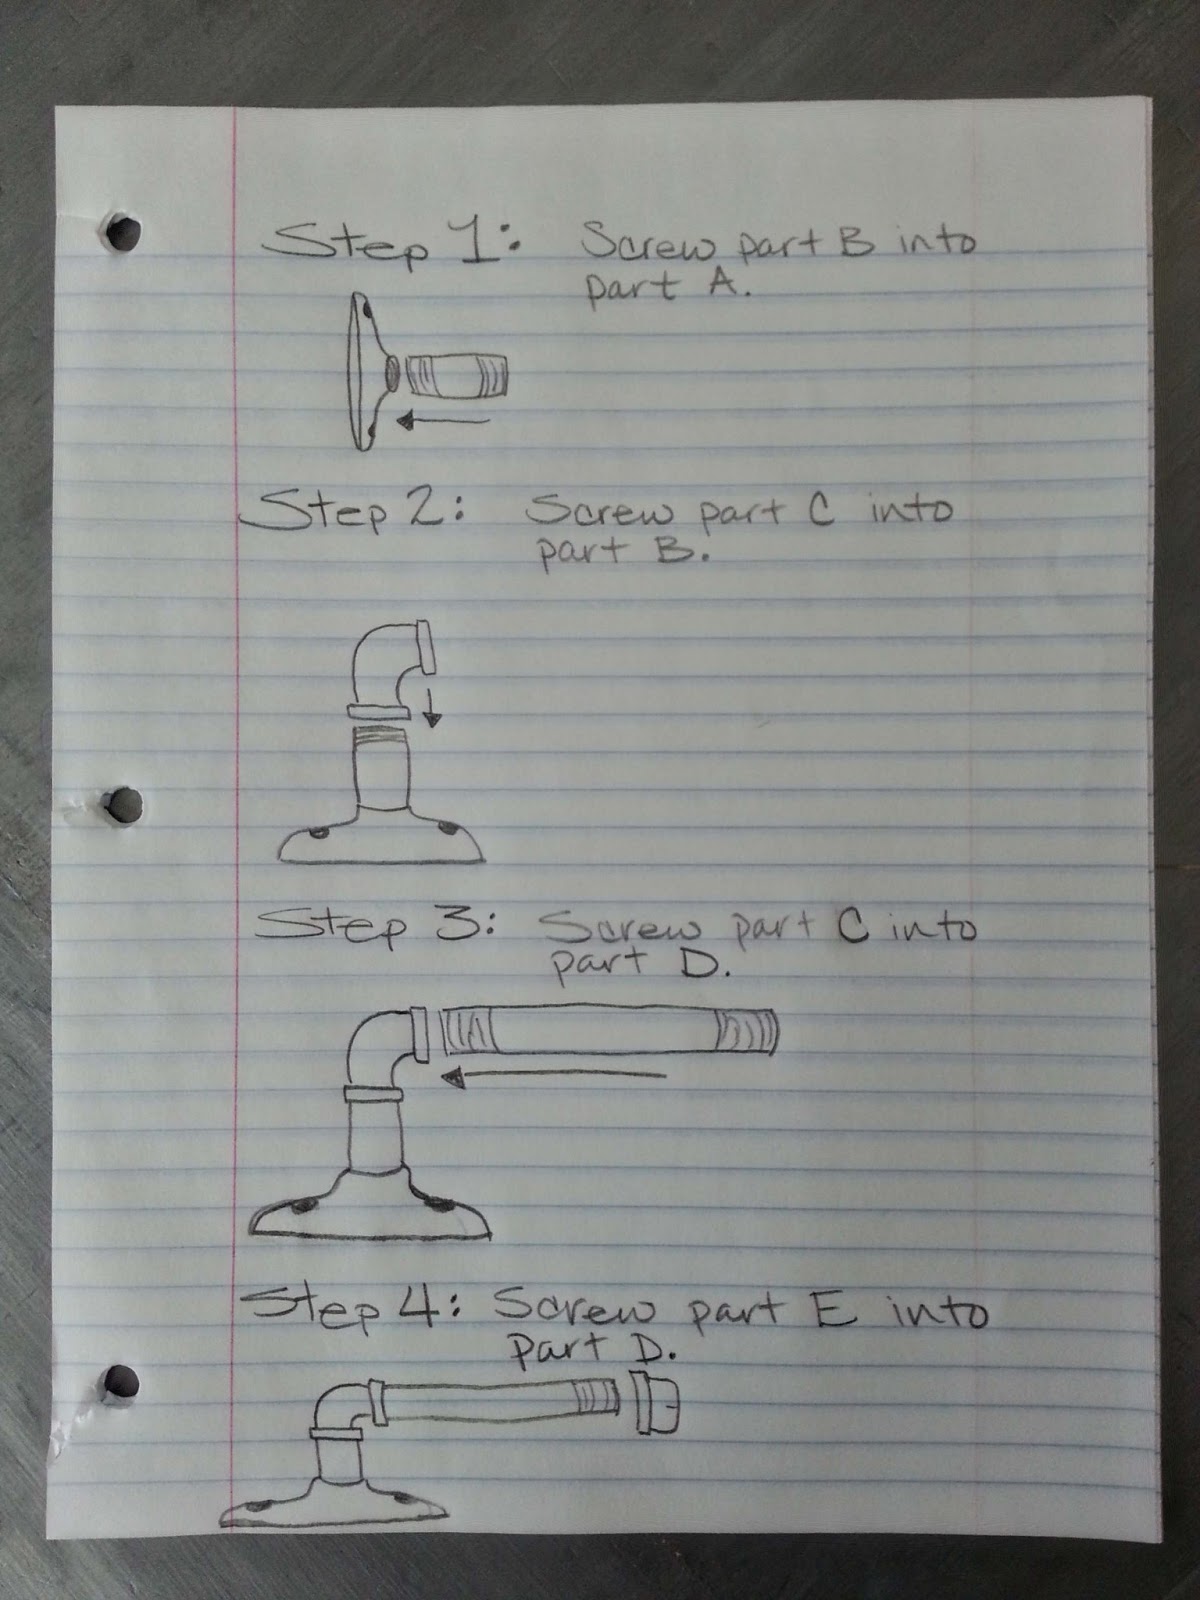 Step 1: Screw part B into
part A.
Step 2: Screw part C into
part B.
Step 3: Screw part C into
part D.
Step 4: Screw part E into
part D.